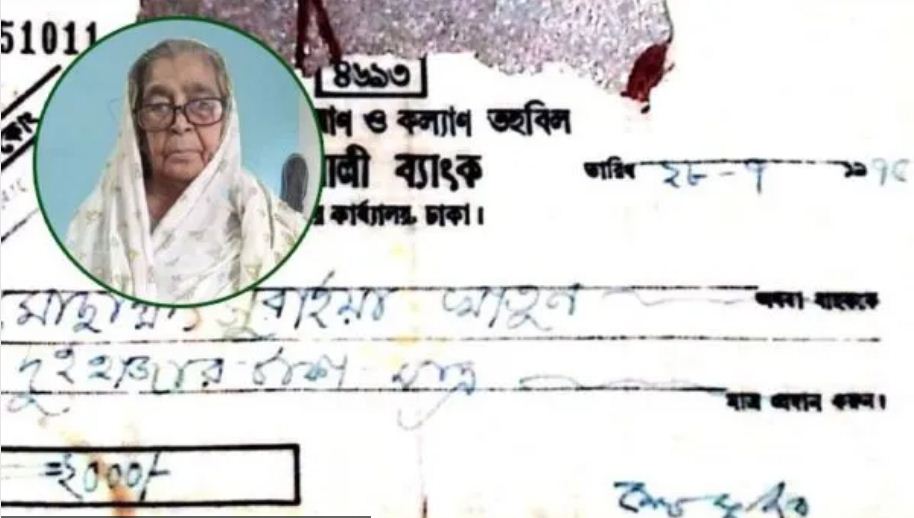 51011
৪৬৯৩
ণ ও কল্যাণ তহবিল
ব্যাংক
কার্য্যালয়, ঢাকা।
তারিখ ২৮-৭ ১৯৭৫
মোছাম্মৎ সুরাইয়া খাতুন অথবা বাহককে
দুই হাজার টাকা মাত্র
মাত্র প্রদান করুন।
=২০০০/-